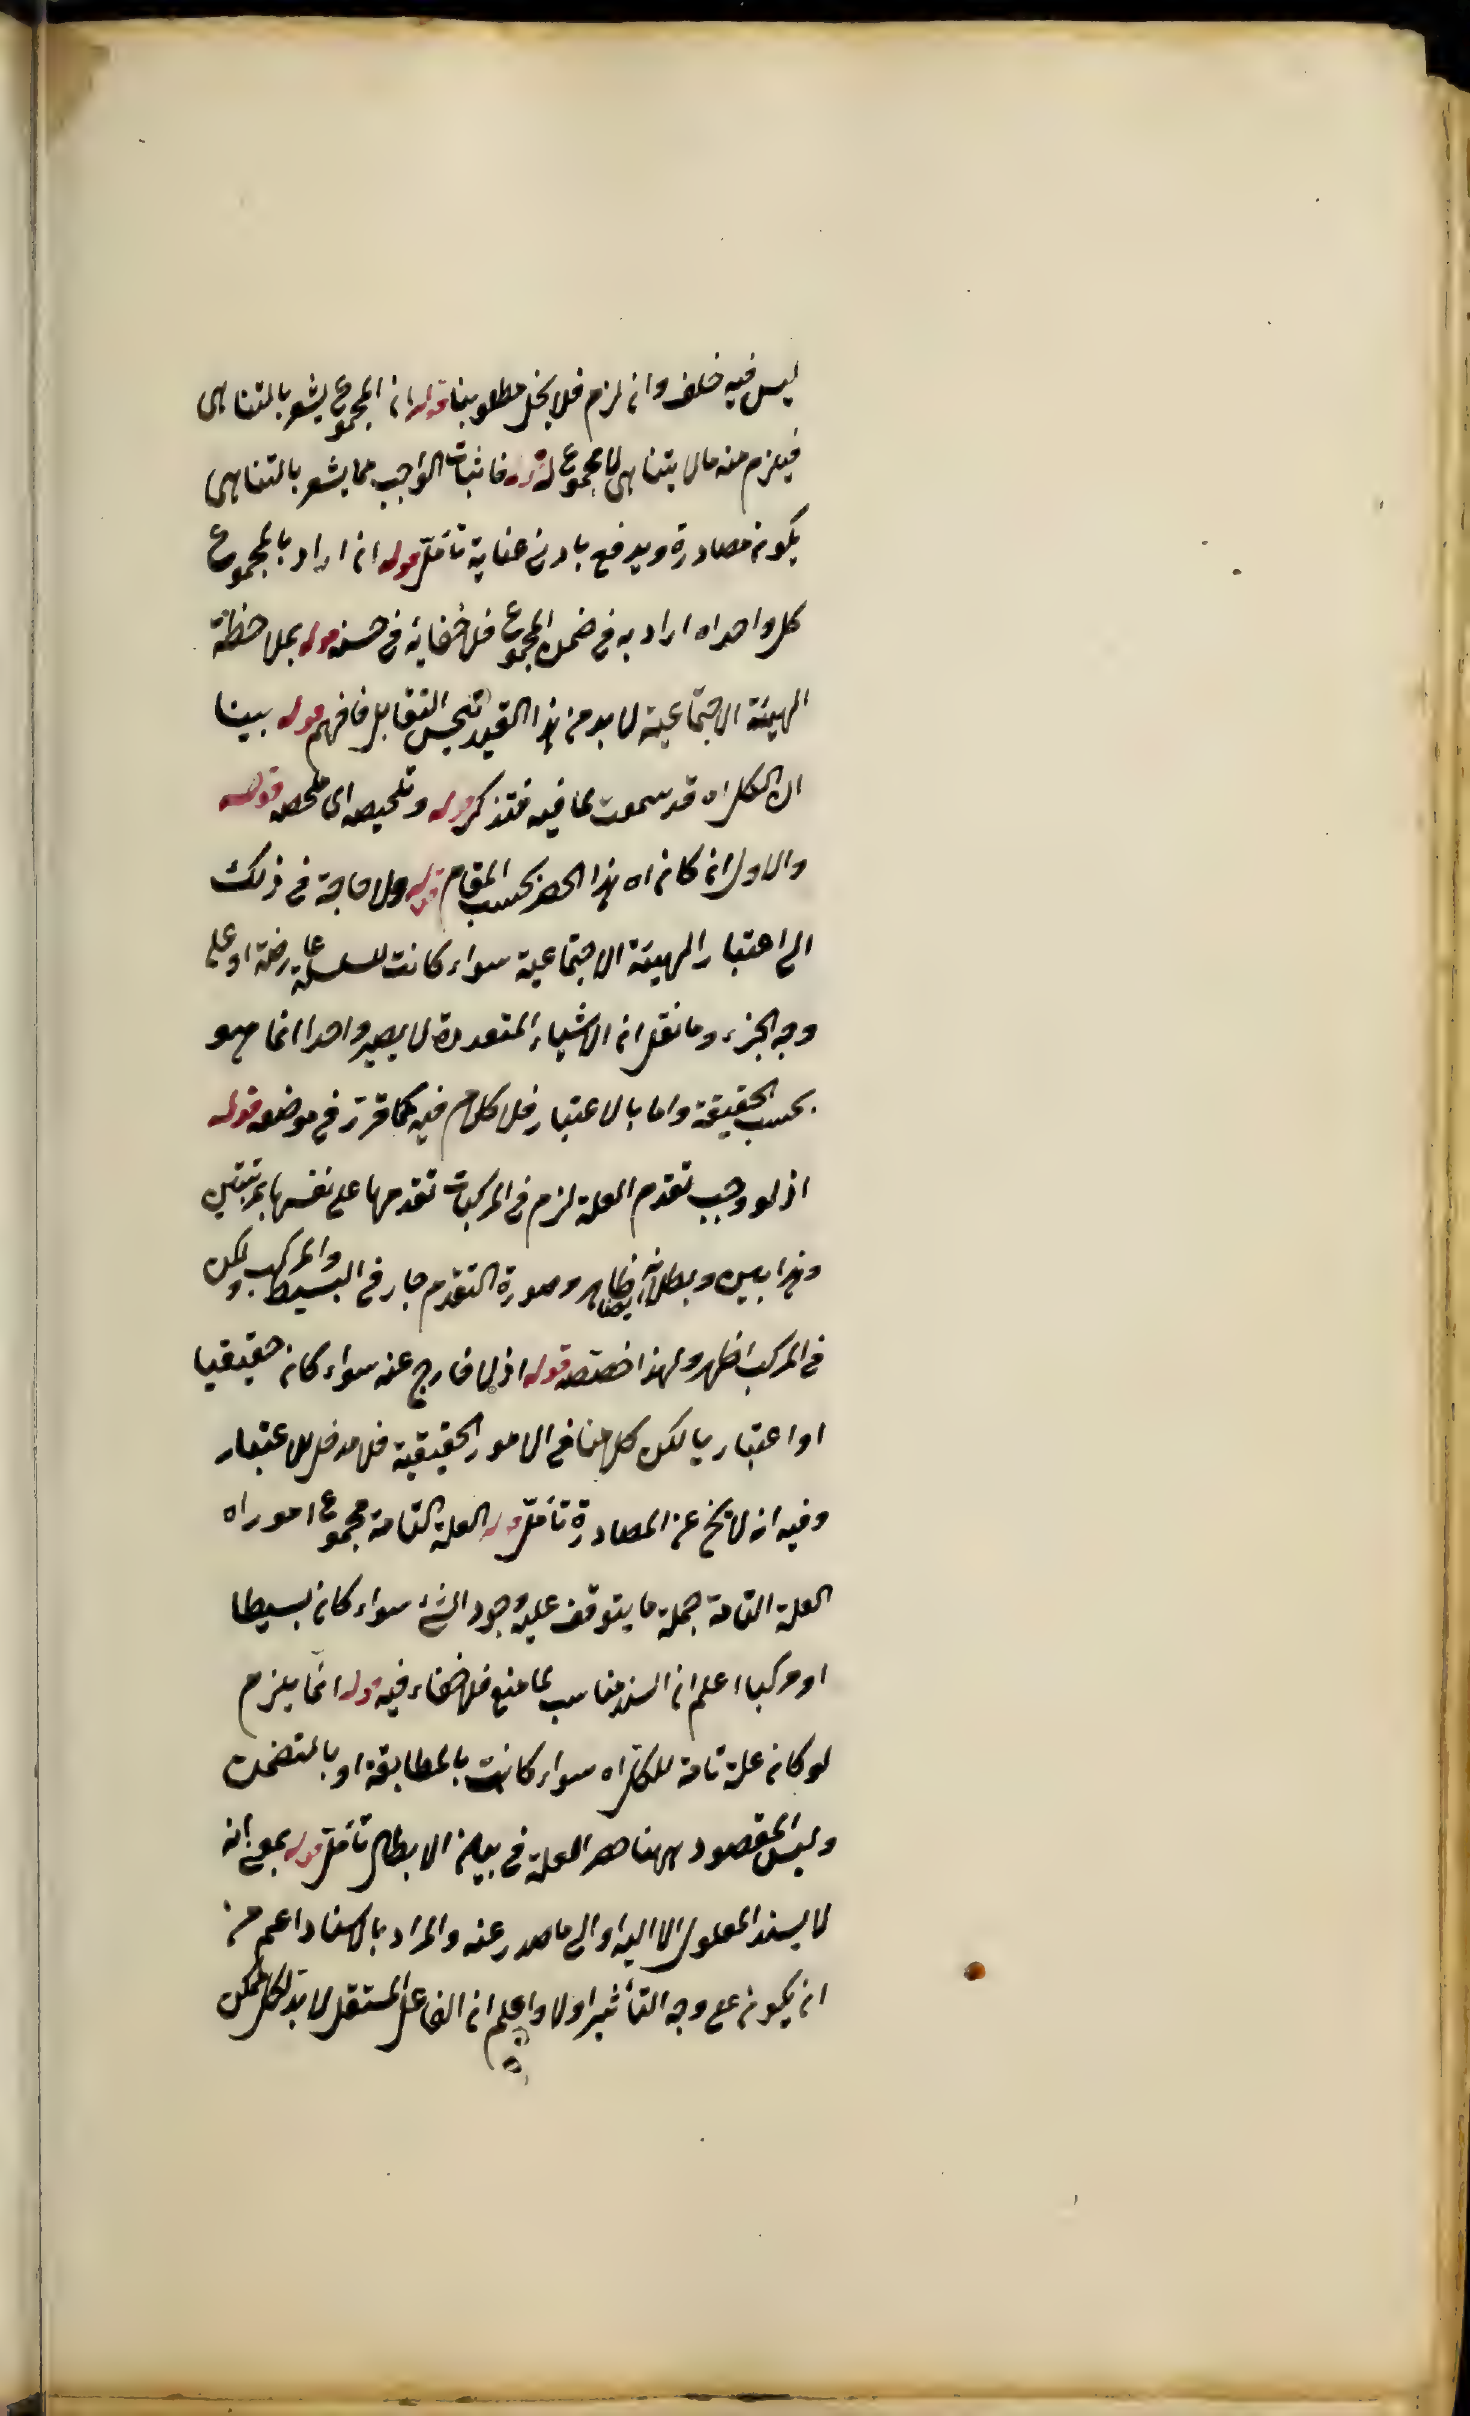 ليس فيه خلف وان لزم فلا يخل مطلوبنا قوله ان المجموع يشعر بالتناهى
فيلزم منه مالا يتناهى لا مجموع له قوله فاثبات الواجب مما يشعر بالتناهى
يكون مصادرة ويدفع بادنى عناية تأمل قوله ان اراد بالمجموع
كل واحد اه اراد به فى ضمن المجموع فلا خفاية فى حسنه قوله بملاحظة
الهيئة الاجتماعية لا بد من هذا القيد التقابل فافهم قوله بينا
ان الكل اه قد سمعت ما فيه فتذكر قوله وتلخيصه اى ملخصه قوله
والاول ان كان اه هذا الحصر بحسب المقام قوله ولا حاجة فى ذلك
الى اعتبار الهيئة الاجتماعية سواء كانت للسلسلة عارضة او على
وجه الجزء وما نقل ان الاشياء المتعددة لا يصير واحدا انما هو
بحسب الحقيقة واما بالاعتبار فلا كلام فيه كما قرر فى موضعه قوله
اذ لو وجب تقدم العلة لزم فى المركبات تقدمها على نفسها بمرتبتين
وهذا بين وبطلانه ظاهر وصورة التقدم جار فى البسيط والمركب ولكن
فى المركب اظهر ولهذا اختصه قوله اذ لا خارج عنه سواء كان حقيقيا
او اعتباريا لكن كلامنا فى الامور الحقيقية فلا مدخل للاعتبار
وفيه انه لا يخ عن المصادرة تأمل قوله العلة التامة مجموع امور اه
العلة التامة جملة ما يتوقف عليه وجود الشئ سواء كان بسيطا
او مركبا اعلم ان السند مناسب لما منع فلا خفاء فيه قوله انما يلزم
لو كان علة تامة للكل اه سواء كانت بالمطابقة او بالتضمن
وليس المقصود ههنا حصر العلة فى بيان الابطال تأمل قوله بمعنى انه
لا يسند المعلول الا اليه او الى ما صدر عنه والمراد بالاسناد اعم من
ان يكون على وجه التأثير اولا واعلم ان الفاعل المستقل لا بد لكل ممكن